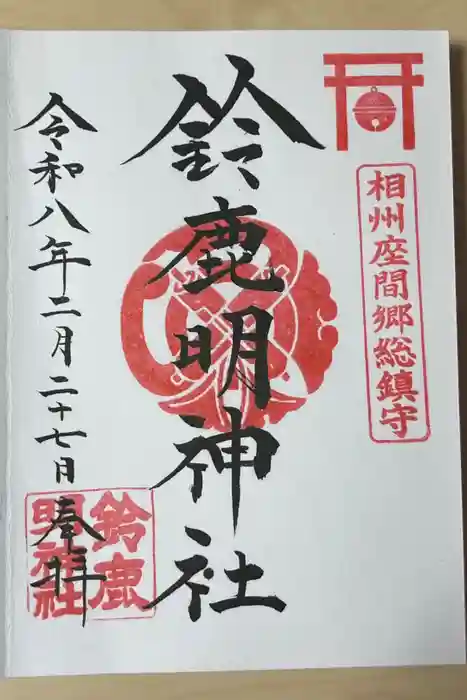 相州座間郷総鎮守
鈴鹿明神社
令和八年二月二十七日 奉拝
鈴鹿
明神社